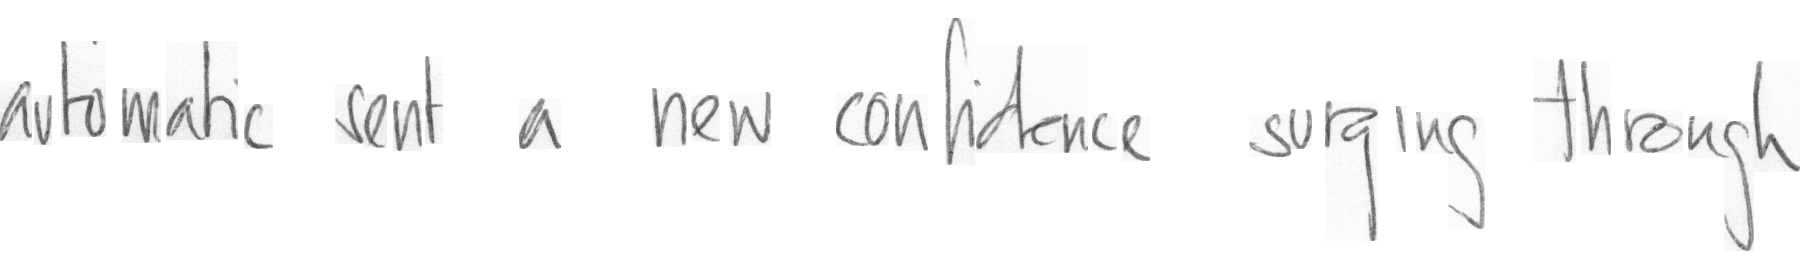 automatic sent a new confidence surging through